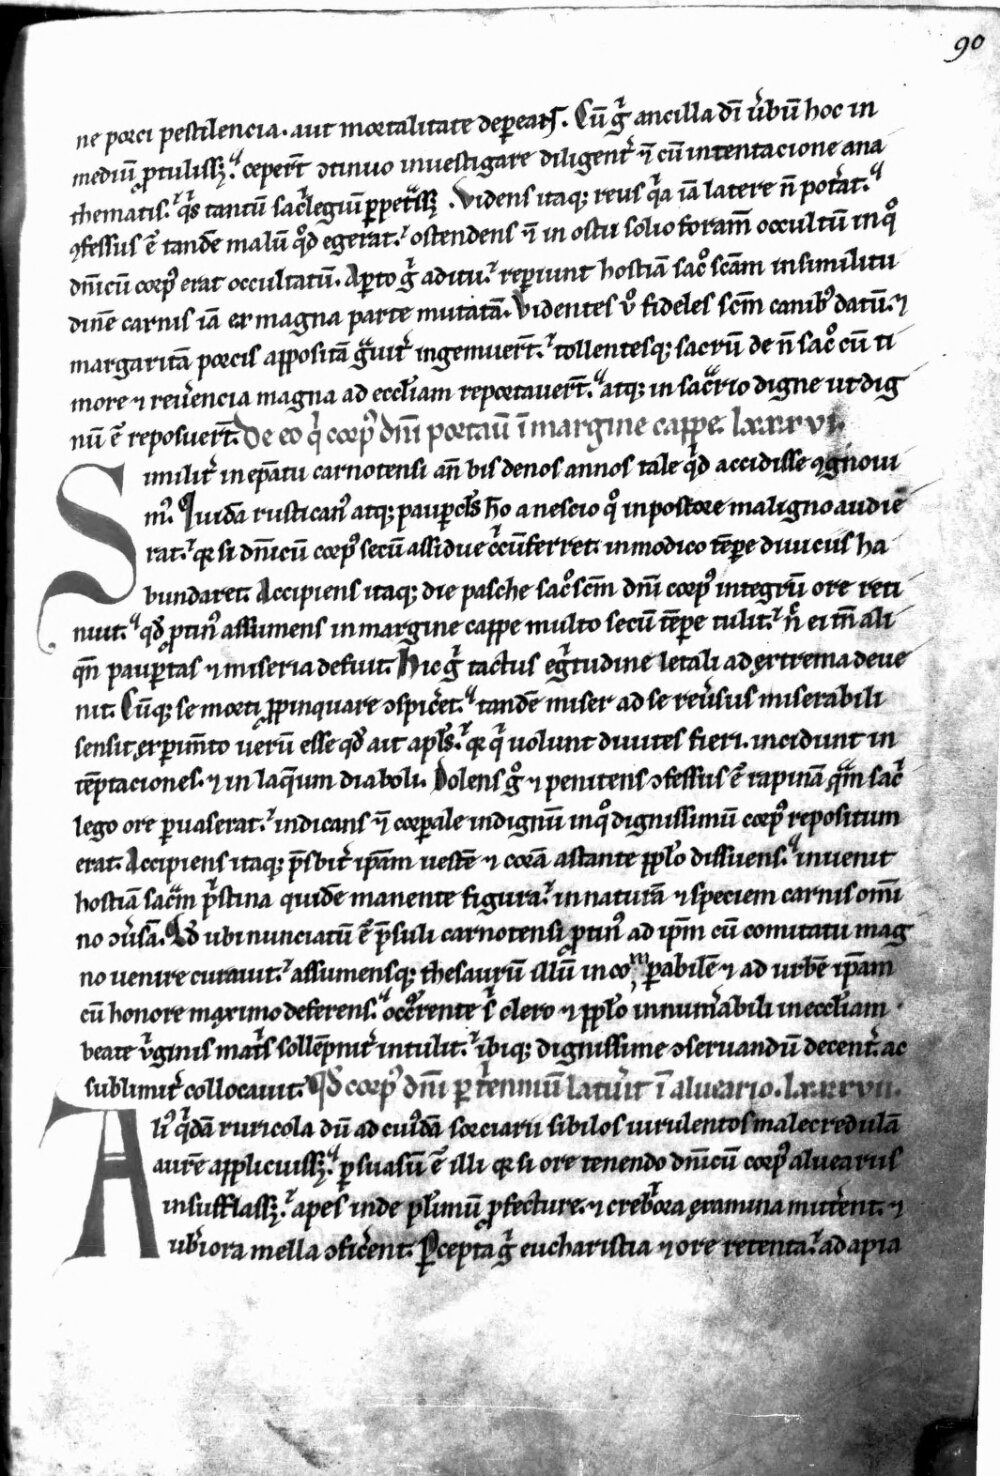 90
ne porci pestilencia. aut mortalitate depeant. Cū gͥ ancilla dī ūbū hoc in
mediū ꝓtulissꝫ. ceperт̄ ꝯtinuo inuestigare diligent̄ ⁊ cū intentacione ana
thematis. qͥs tantū sacͥlegiū ꝑpetͣssꝫ. Videns itaqꝫ reus qͥa iā latere n̄ pot̄at.
ꝯfessus ē tandē malū qd̄ egerat. ostendens ⁊ in ostii solio foramī occultū in qͦ
dn̄icū corpꝰ erat occultatū. Apto gͥ aditu. repiunt hostiā sacͦscām in similitu
dinē carnis iā ex magna parte mutatā. Videntes uͦ fideles scm̄ canibꝰ datū. ⁊
margaritā porcis appositā gͣuit̄ ingemuert̄. tollentesqꝫ sacrū de n̄ sacͦ cū ti
more ⁊ reūencia magna ad eccl̄iam reportauert̄. atqꝫ in sacͣrio digne ut dig
nū ē reposuert̄. De eo qͥ corpꝰ dn̄i portauͥ ī margine cappe. lxxxvi.
Similit̄ in ep̄atu carnotensi an̄ bis denos annos tale qͥd accidisse ꝯgnoui
mꝰ. Quidā rusticanꝰ atqꝫ paupcl̄s hō a nescio qͦ inpostore maligno audie
rat. qꝛ si dn̄icū corpꝰ secū assidue cͥcūferret. in modico tēpe diuiciis ha
bundaret. Accipiens itaqꝫ die pasche sacͦscm̄ dn̄i corpꝰ integrū ore reti
nuit. qd̄ ꝓtinꝰ assumens in margine cappe multo secū tēpe tulit. n̄ ei tm̄ ali
qn̄ paup̄tas ⁊ miseria defuit. Hic gͥ tactus egͥtudine letali ad extrema deue
nit. Cūqꝫ se morti ꝓpinquare ꝯspicͤet. tandē miser ad se reūsus miserabili
sensit expim̄to uerū esse qd̄ ait apl̄s. qꝛ qͥ uolunt diuites fieri. incidunt in
tēptaciones. ⁊ in laq̄um diaboli. Dolens gͦ ⁊ penitens ꝯfessus ē rapinā qͣm sacͥ
lego ore ꝑuaserat. indicans ⁊ corpale indignū in qͦ dignissimū corpꝰ repositum
erat. Accipiens itaqꝫ p̄sbit̄ ip̄am uestē ⁊ corā astante ppl̄o dissuens. inuenit
hostiā sacͣm pͥstina quidē manente figura. in naturā ⁊ speciem carnis om̄i
no ꝯūsā. Qd̄ ubi nunciatū ē p̄suli carnotensi ꝓtinꝰ ad ip̄m cū comitatu mag
no uenire curauit. assumensqꝫ thesaurū illū incomparabilē ⁊ ad urbē ip̄am
cū honore maximo deferens. occͬrente sͥ clero ⁊ ppl̄o innum̄abili in eccl̄iam
beate ūginis mat̄s sollēpnit̄ intulit. ibiqꝫ dignissime ꝯseruandū decent̄ ac
sublimit̄ collocauit. Qd̄ corpꝰ dn̄i ꝑ tͥennium latuit ī alueario. lxxxvii.
Aliꝰ qͥdā ruricola dū ad cuiꝰdā sorciarii sibilos uirulentos male credulā
aurē applicuissꝫ. ꝑsuasū ē illi qꝛ si ore tenendo dn̄icū corpꝰ aluearus
insufflassꝫ. apes inde pl̄imū ꝓfecture. ⁊ crebͥora examina mitt̄ent. ⁊
ub̄iora mella ꝯfic̄ent. Pcepta gͥ eucharistia ⁊ ore retenta. ad apia